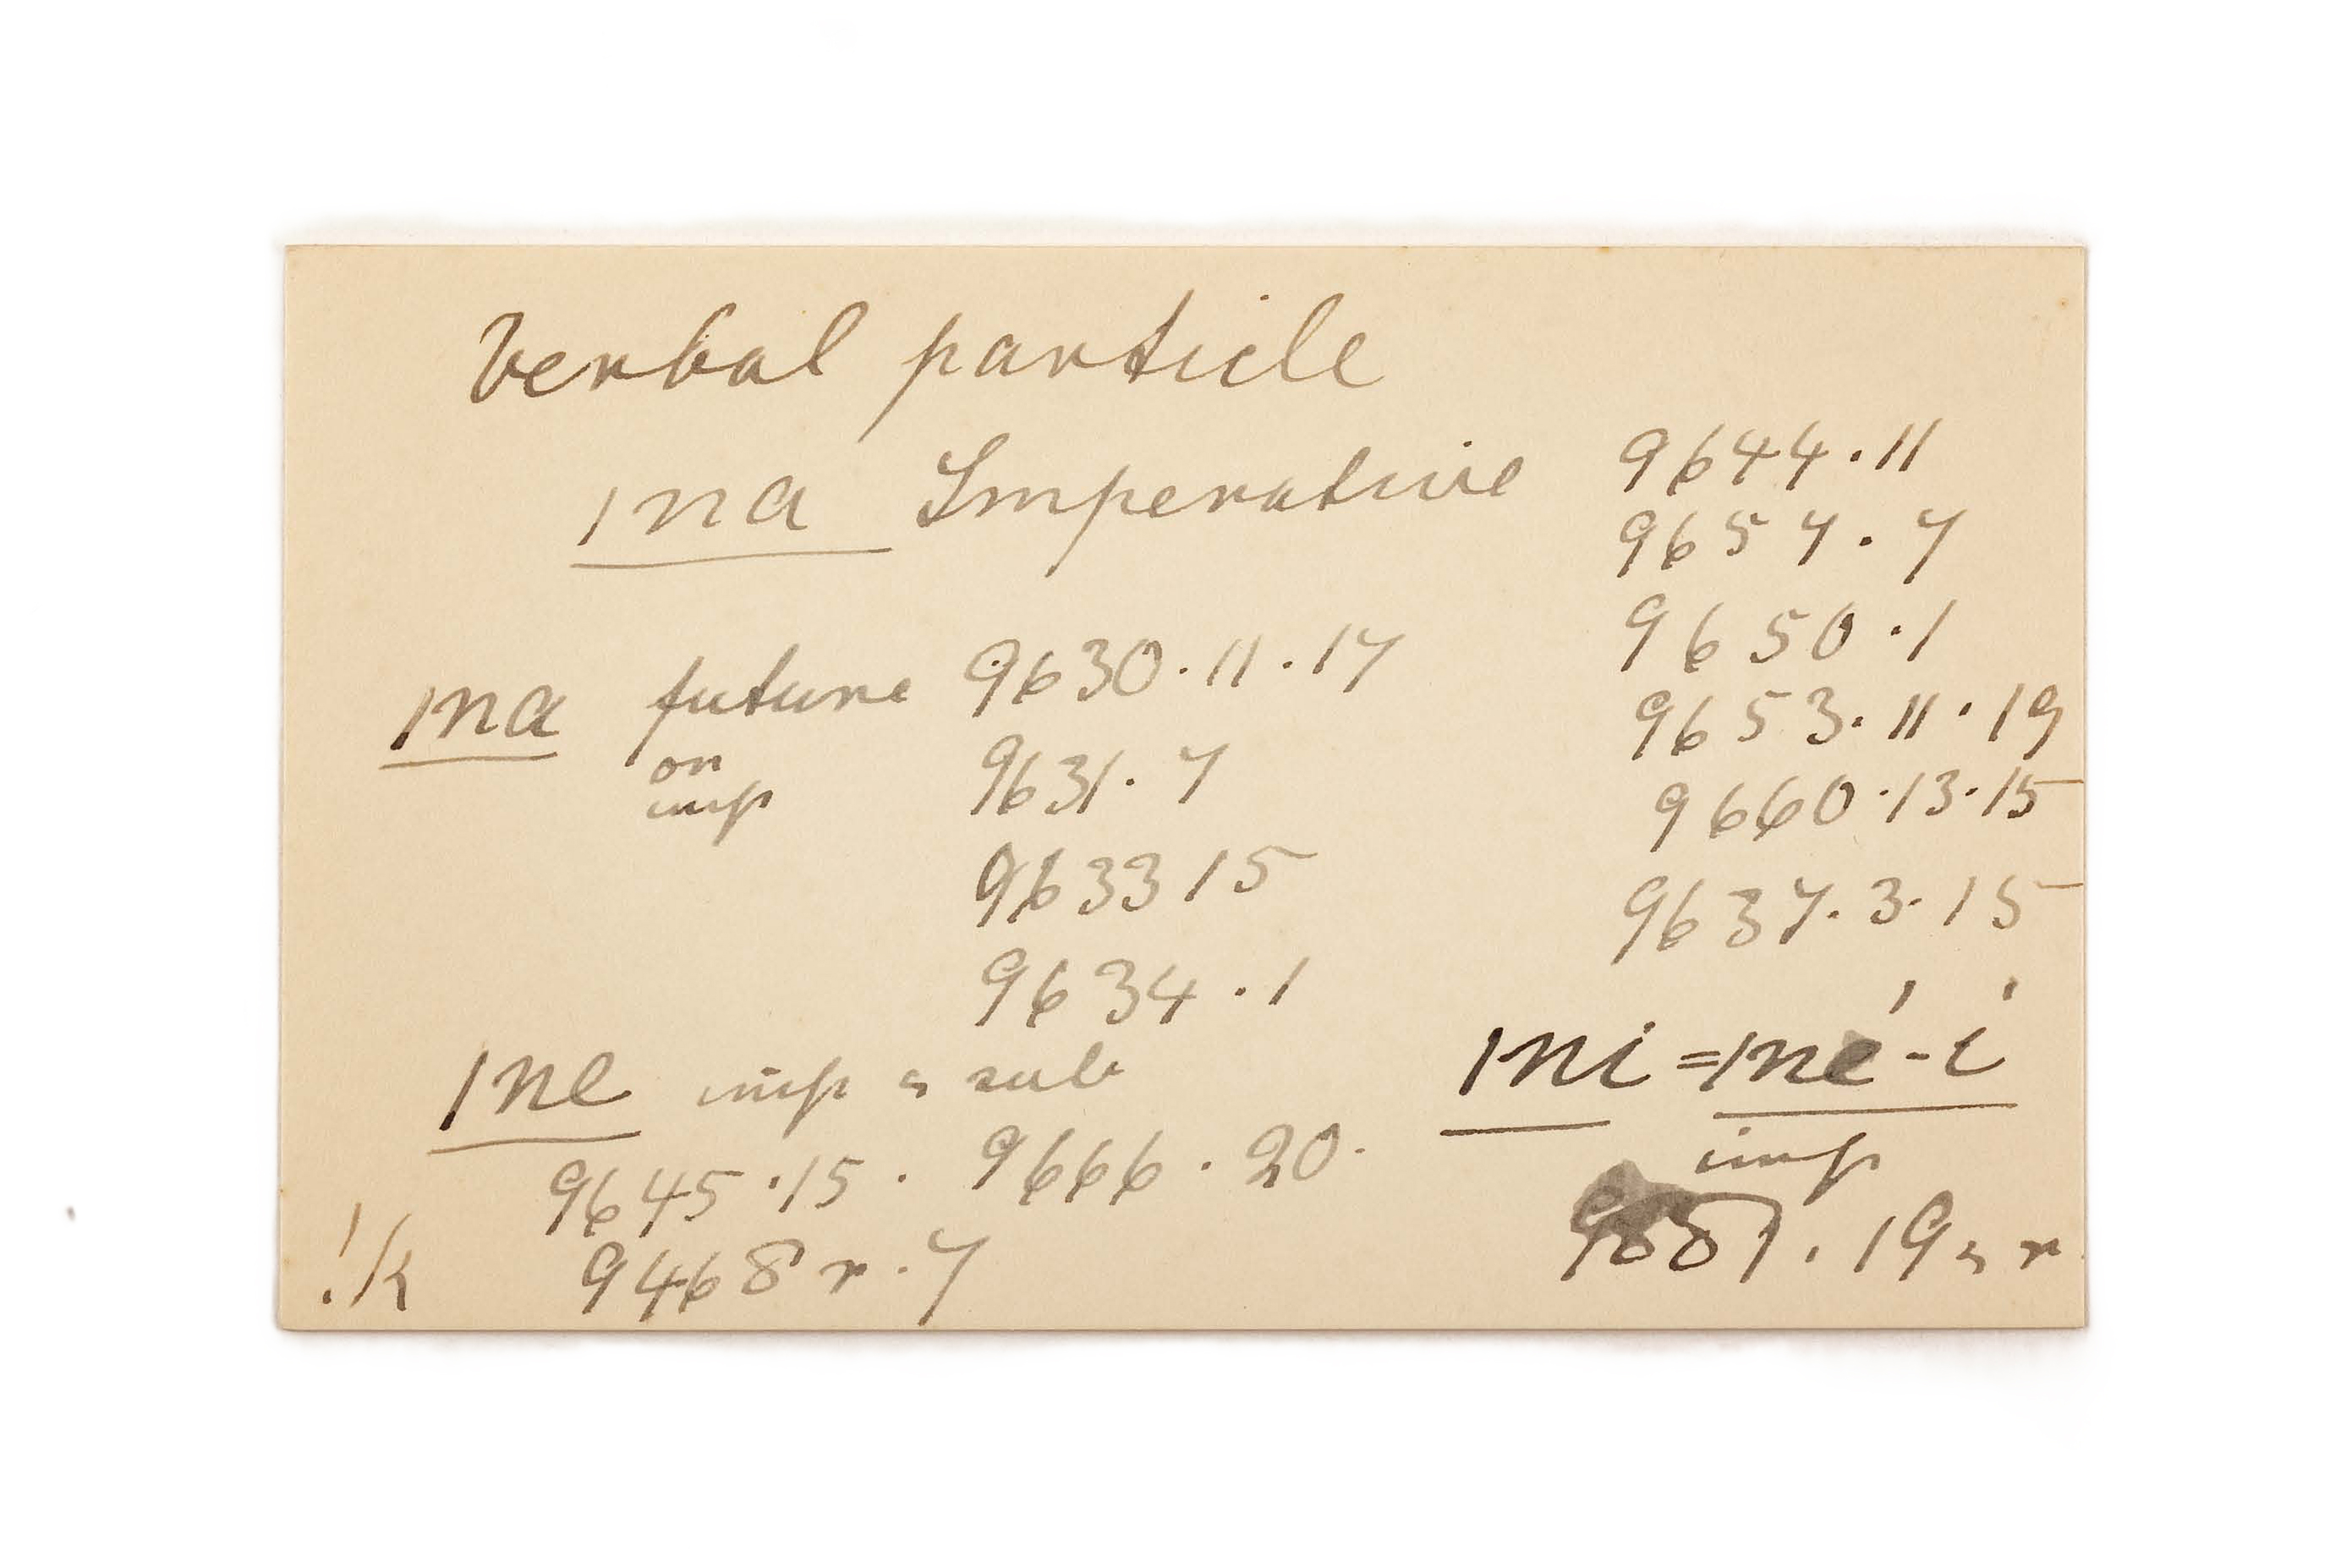 Verbal particle
/na Imperative
/na future 9630.11.17
or
imp
9631.7
9633 15
9634.1
/ne imp & sub
9645.15. 9666.20.
9468 r.7
9644.11
9657.7
9650.1
9653.11.19
9660.13.15
9637.3.15
/ni=/né-í
imp
.19 & r